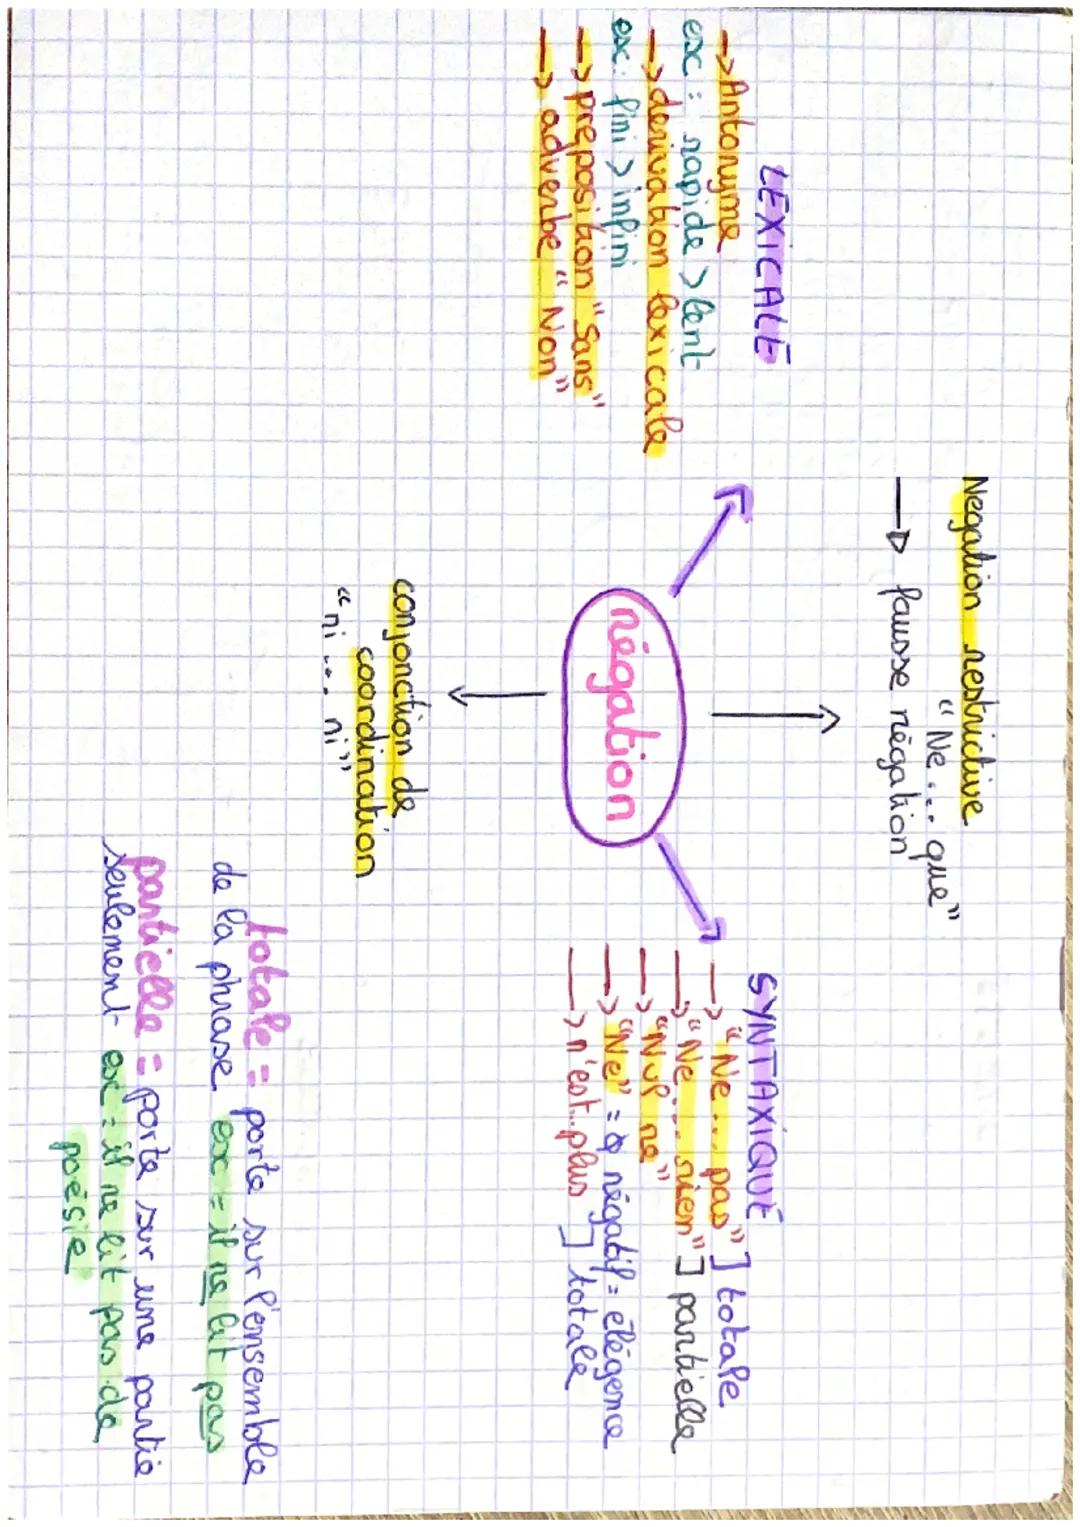 Negation restrictive
"Ne... que"
fausse négation
LEXICALE
→ Antonyme
ex : rapide > lent
→ derivation lexicale
ex: fini > infini
→ préposition "sans"
→ adverbe "Non"
négation
SYNTAXIQUE
→ "Ne... pas" ] totale
→ "Ne... rien" ] partielle
→ "Nul ne"
→ "Ne" = négatif = élégence
→ n'est..plus ] totale
conjonction de
coordination
"ni ... ni"
totale = porte sur l'ensemble
de la phrase ex = il ne lit pas
partielle = porte sur une partie
seulement ex = il ne lit pas de
poésie